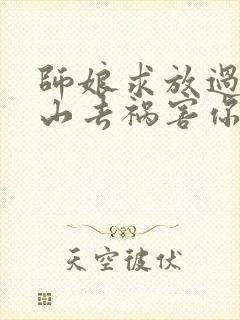 師娘求放過
山去禍害你
天空彼伏